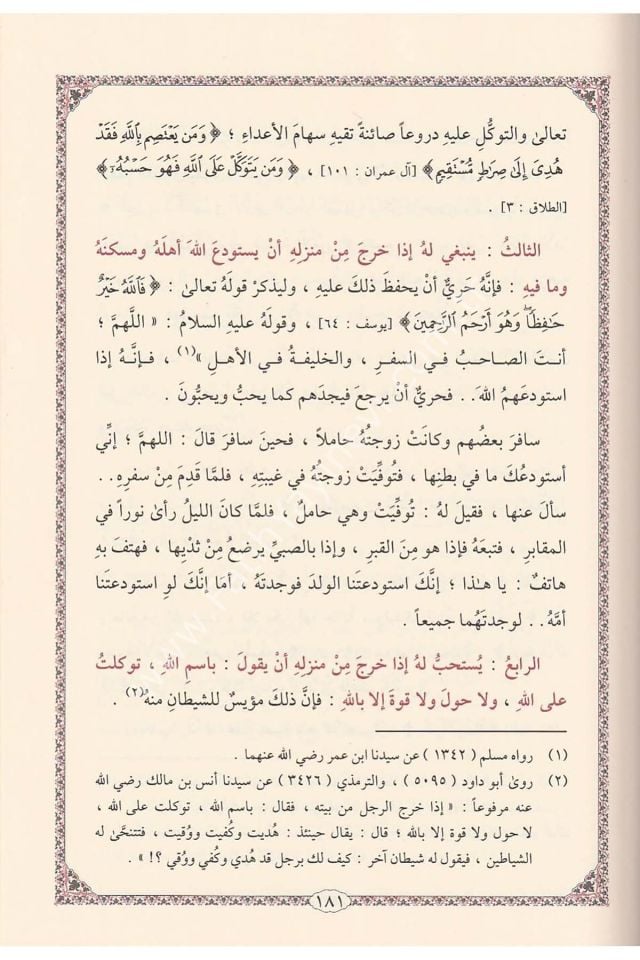 تعالىٰ والتوكُّلِ عليهِ دروعاً صائنةً تقيهِ سهامَ الأعداءِ ؛ ﴿ وَمَن يَعْتَصِم بِاللَّهِ فَقَدْ
هُدِىَ إِلَىٰ صِرَٰطٍ مُّسْتَقِيمٍ ﴾ [آل عمران : ١٠١] ، ﴿ وَمَن يَتَوَكَّلْ عَلَى اللَّهِ فَهُوَ حَسْبُهُۥٓ ﴾
[الطلاق : ٣] .
الثالثُ : ينبغي لهُ إذا خرجَ مِنْ منزلِهِ أنْ يستودعَ اللهَ أهلَهُ ومسكنَهُ
وما فيهِ : فإنَّهُ حَرِيٌّ أن يحفظَ ذلكَ عليهِ ، وليذكرْ قولَهُ تعالىٰ : ﴿ فَاللَّهُ خَيْرٌ
حَٰفِظًا ۖ وَهُوَ أَرْحَمُ الرَّٰحِمِينَ ﴾ [يوسف : ٦٤] ، وقولَهُ عليهِ السلامُ : « اللهمَّ ؛
أنتَ الصاحبُ في السفرِ ، والخليفةُ في الأهلِ »(١) ، فإنَّهُ إذا
استودعَهُمُ اللهَ.. فحريٌّ أنْ يرجعَ فيجدَهم كما يحبُّ ويحبُّونَ .
سافرَ بعضُهم وكانَتْ زوجتُهُ حاملاً ، فحينَ سافرَ قالَ : اللهمَّ ؛ إنِّي
أستودعُكَ ما في بطنِها ، فتُوفِّيَتْ زوجتُهُ في غيبتِهِ ، فلمَّا قدِمَ مِنْ سفرِهِ..
سألَ عنها ، فقيلَ لهُ : تُوفِّيَتْ وهي حاملٌ ، فلمَّا كانَ الليلُ رأىٰ نوراً في
المقابرِ ، فتبعَهُ فإذا هو مِنَ القبرِ ، وإذا بالصبيِّ يرضعُ مِنْ ثديِها ، فهتفَ بهِ
هاتفٌ : يا هـٰذا ؛ إنَّكَ استودعتَنا الولدَ فوجدتَهُ ، أمَا إنَّكَ لوِ استودعتَنا
أمَّهُ.. لوجدتَهُما جميعاً .
الرابعُ : يُستحبُّ لهُ إذا خرجَ مِنْ منزلِهِ أن يقولَ : باسمِ اللهِ ، توكلتُ
على اللهِ ، ولا حولَ ولا قوةَ إلا باللهِ : فإنَّ ذلكَ مؤيسٌ للشيطانِ منهُ(٢) .
(١) رواه مسلم ( ١٣٤٢ ) عن سيدنا ابن عمر رضي الله عنهما .
(٢) روىٰ أبو داود ( ٥٠٩٥ ) ، والترمذي ( ٣٤٢٦ ) عن سيدنا أنس بن مالك رضي الله
عنه مرفوعاً : « إذا خرج الرجل من بيته ، فقال : باسم الله ، توكلت على الله ،
لا حول ولا قوة إلا بالله ؛ قال : يقال حينئذ : هُديت وكُفيت ووُقيت ، فتتنحَّىٰ له
الشياطين ، فيقول له شيطان آخر : كيف لك برجل قد هُدي وكُفي ووُقي ؟! » .
١٨١